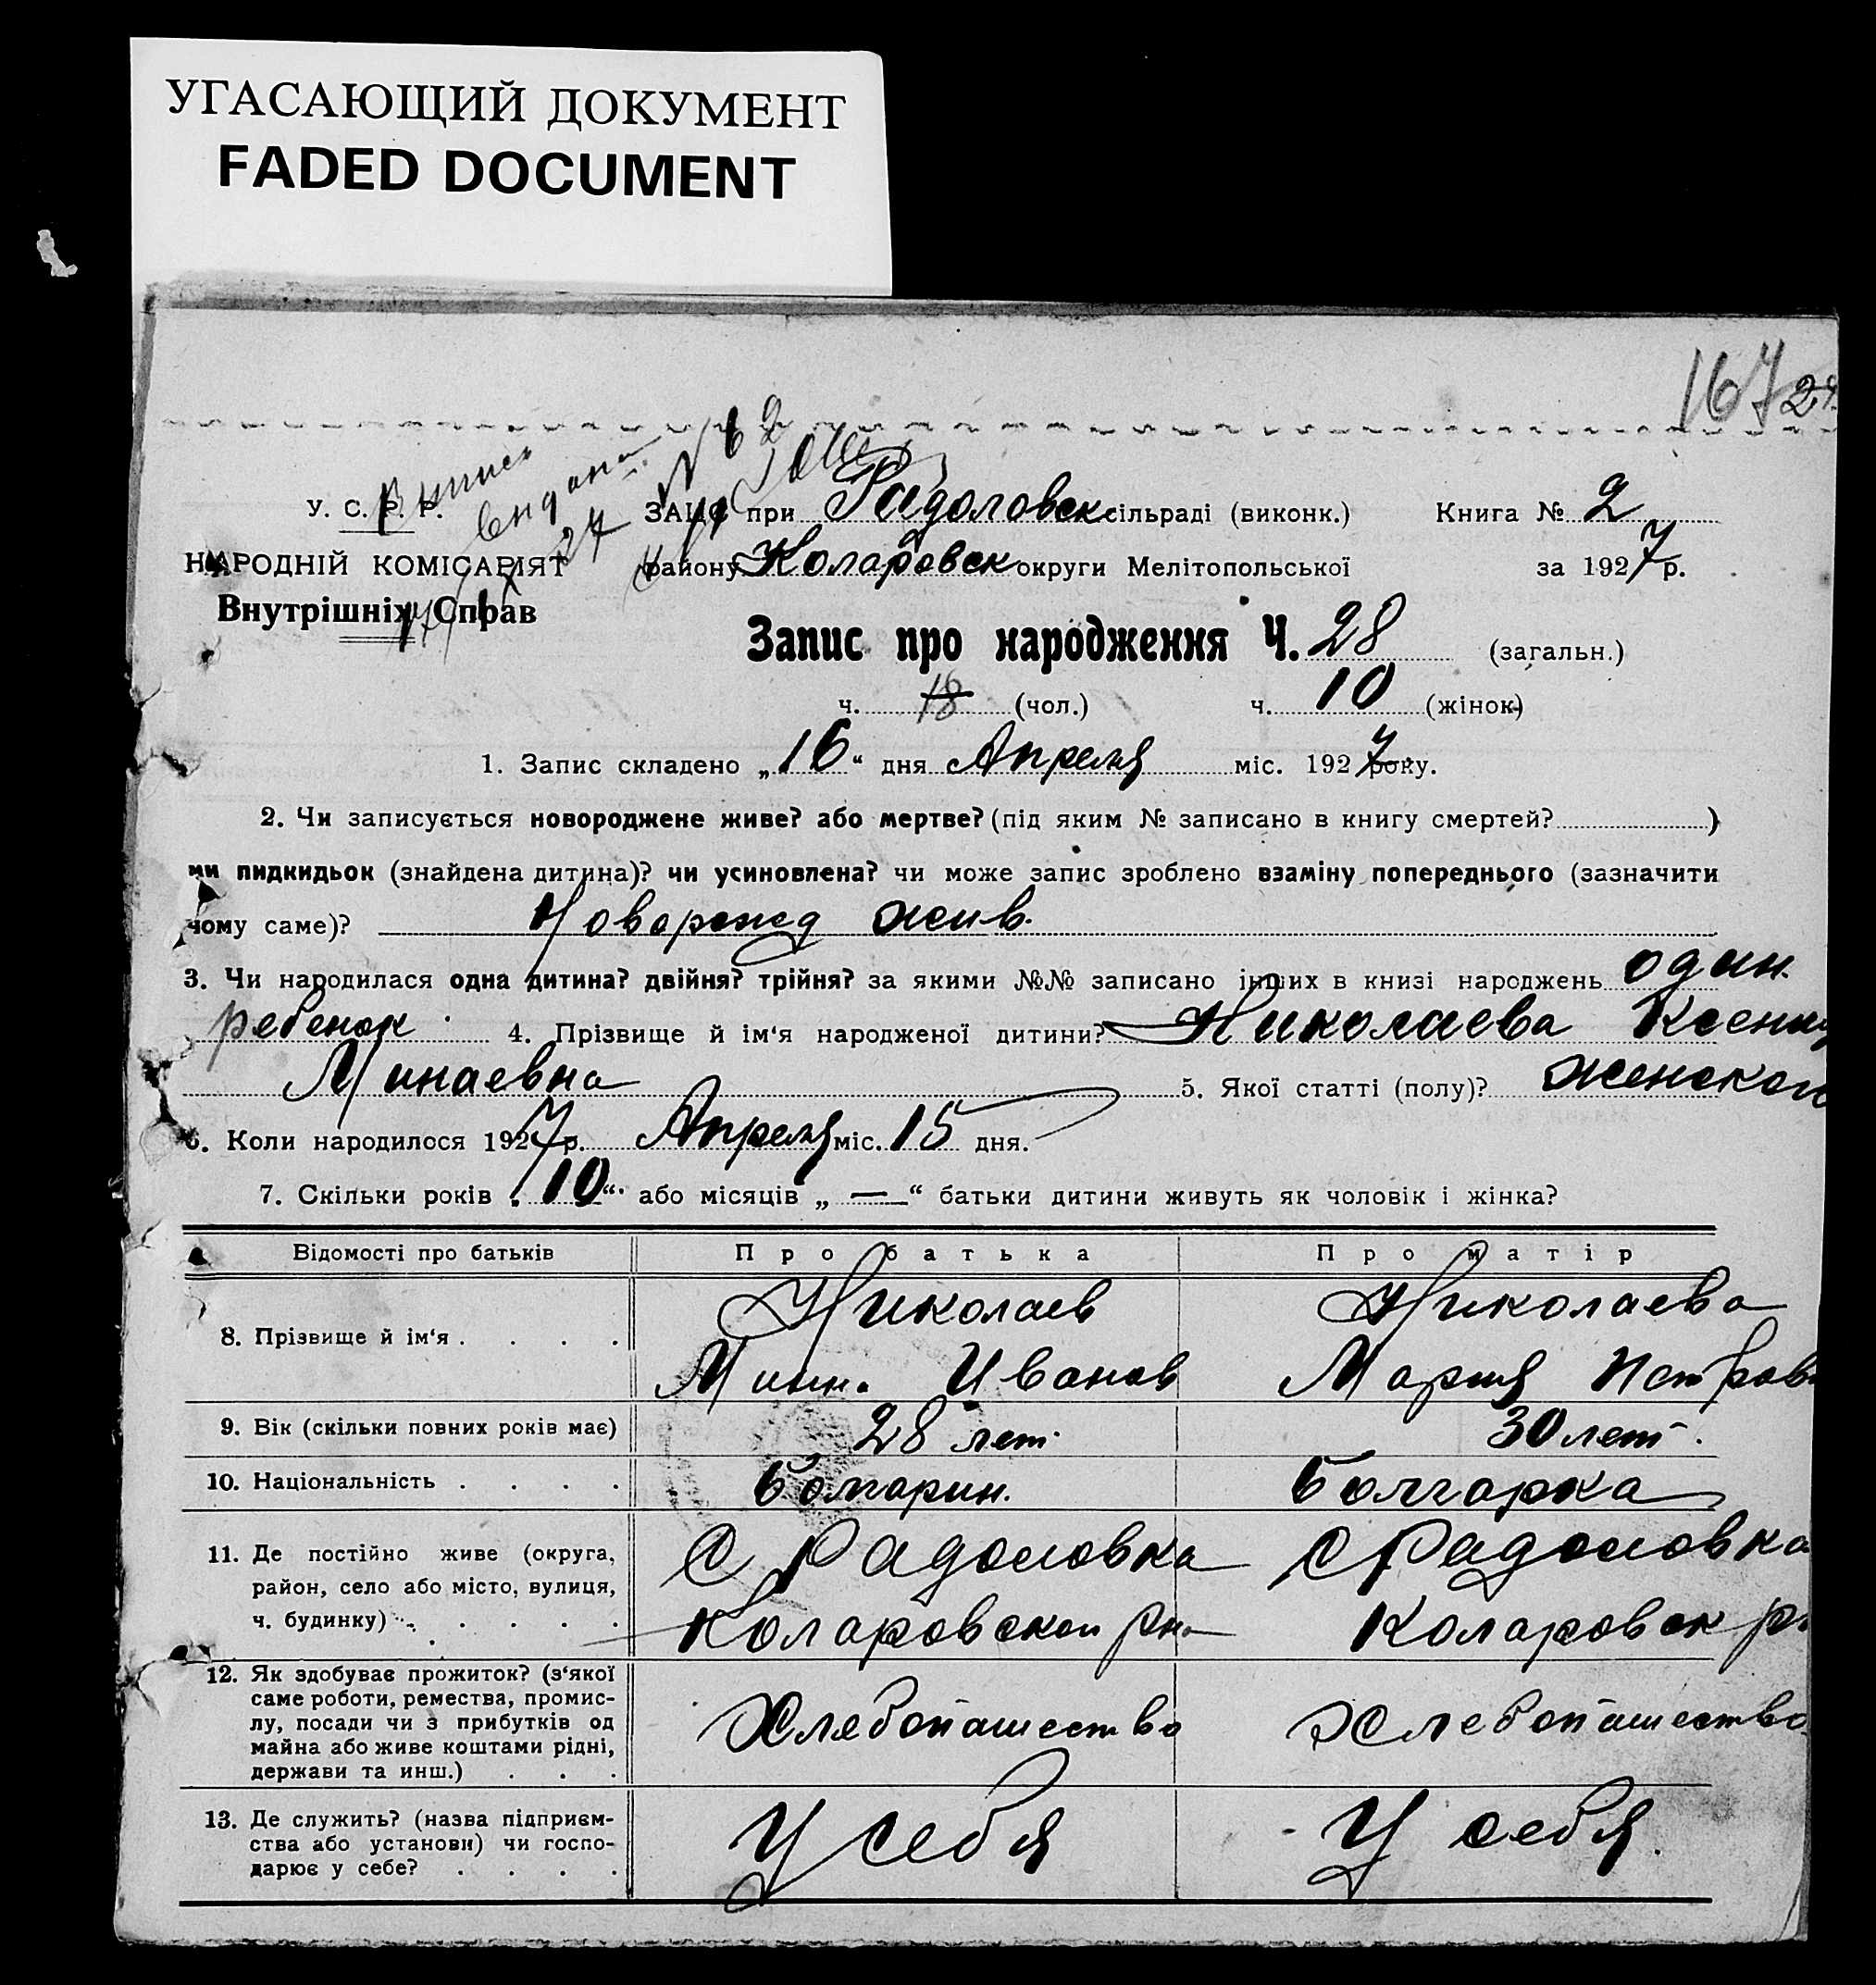 УГАСАЮЩИЙ ДОКУМЕНТ
FADED DOCUMENT
167
У. С. Р. Р.
НАРОДНІЙ КОМІСАРІЯТ
Внутрішніх Справ
Выпись выдана
ЗАЦС при Радоловск сільраді (виконк.) Книга № 2
району Коларовск округи Мелітопольської за 1927 р.
Запис про народження Ч. 28 (загальн.)
ч. 18 (чол.) ч. 10 (жінок)
1. Запис складено „16“ дня Апреля міс. 1927 року.
2. Чи записується новороджене живе? або мертве? (під яким № записано в книгу смертей? )
чи пидкидьок (знайдена дитина)? чи усиновлена? чи може запис зроблено взаміну попереднього (зазначити
чому саме)? Новорожд жив.
3. Чи народилася одна дитина? двійня? трійня? за якими №№ записано інших в книзі народжень один.
ребенок 4. Прізвище й ім‘я народженої дитини? Николаева Ксения
Минаевна 5. Якої статті (полу)? женскои
6. Коли народилося 1927 р. Апреля міс. 15 дня.
7. Скільки років „10“ або місяців „ — “ батьки дитини живуть як чоловік і жінка?
Відомості про батьків Про батька Про матір
8. Прізвище й ім‘я . . . . Николаев Николаева
Мина Иванов Мария Петров
9. Вік (скільки повних років має) 28 лет. 30 лет.
10. Національність . . . . болгарин. болгарка
11. Де постійно живе (округа, район, село або місто, вулиця, ч. будинку) . . . . .
С Радоловка С Радоловка
Коларовскои рна Коларовск р
12. Як здобуває прожиток? (з‘якої
саме роботи, ремества, промис-
лу, посади чи з прибутків од
майна або живе коштами рідні,
держави та инш.) . . .
Хлебопашество Хлебопашество
13. Де служить? (назва підприєм-
ства або установи) чи госпо-
дарює у себе? . . . .
У себя У себя.